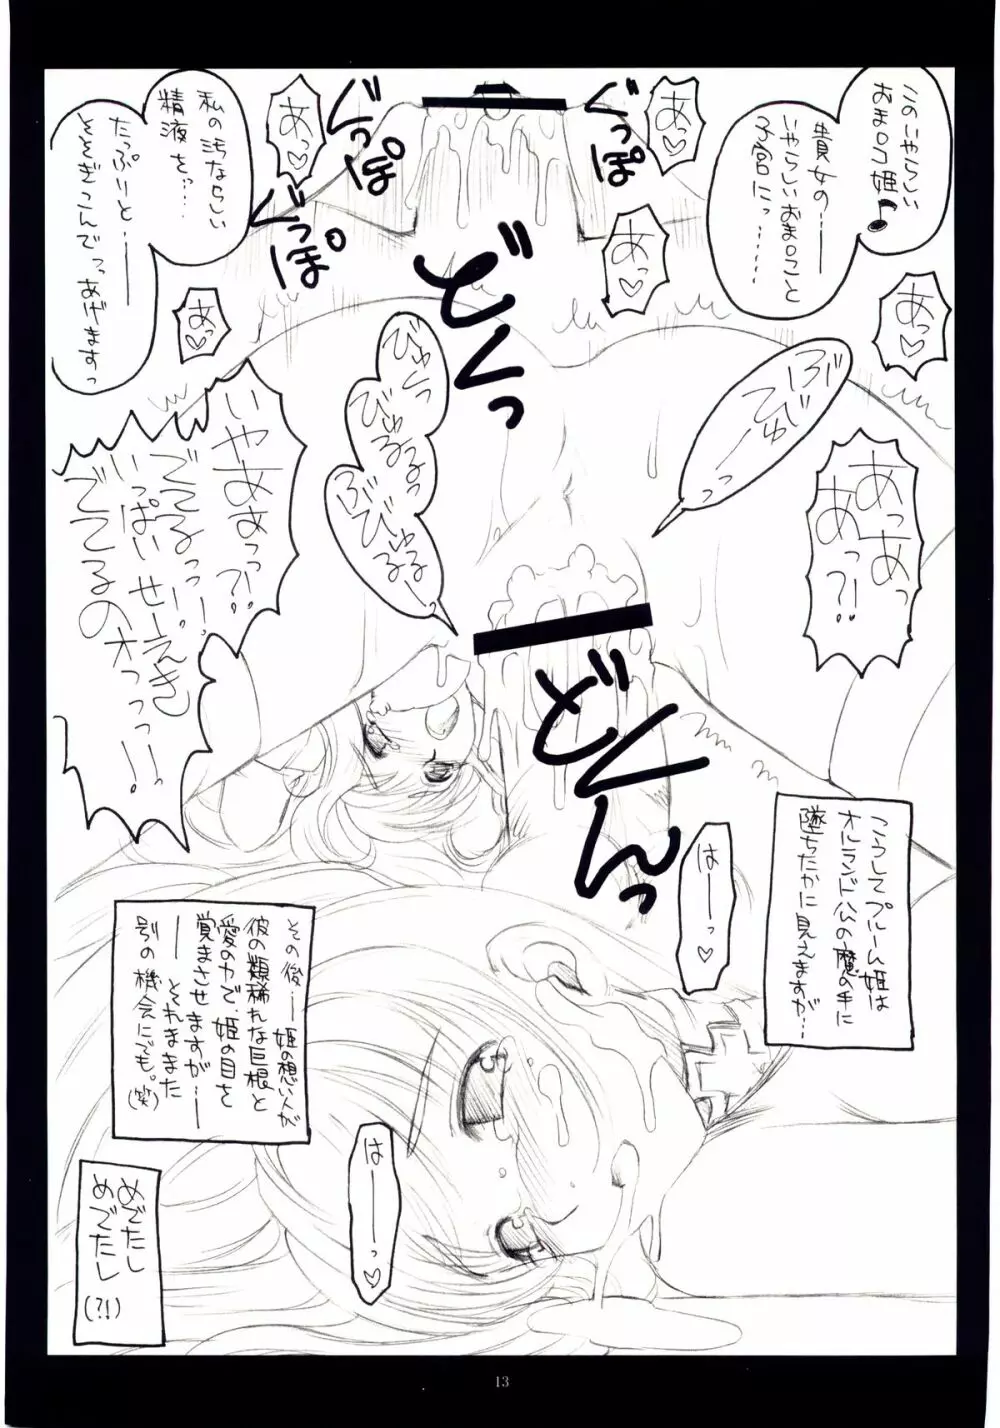 このいやらしい
おま□コ姫♪
貴女の……
いやらしいおま□こと
子宮にっ……
私の汚ならしい
精液を…
たっぷりと……
そそぎこんでっあげますっ
あっ♡
あっ♡
あっ♡
あっ♡
あっ♡
ぐっぽ
ぐっぽ
ぐっぽ
どくっ
ぶじ
びゅーっっ
びゅくっ
びゅるるっ
ぶびゅるるーっ
あっあっ
あっ?!
いやああっっ?!
でてるっっ!!
いっぱいせーえき
でてるのオっっっ!!
どくんっ
はーっ♡
こうしてプルーム姫は
オルランド公の魔の手に
墜ちたかに見えますが…
その後……姫の想い人が
彼の類稀れな巨根と
愛の力で、姫の目を
覚まさせますが——
——それはまた
別の機会にでも。(笑)
はーっ♡
めでたし
めでたし
(?!)
13